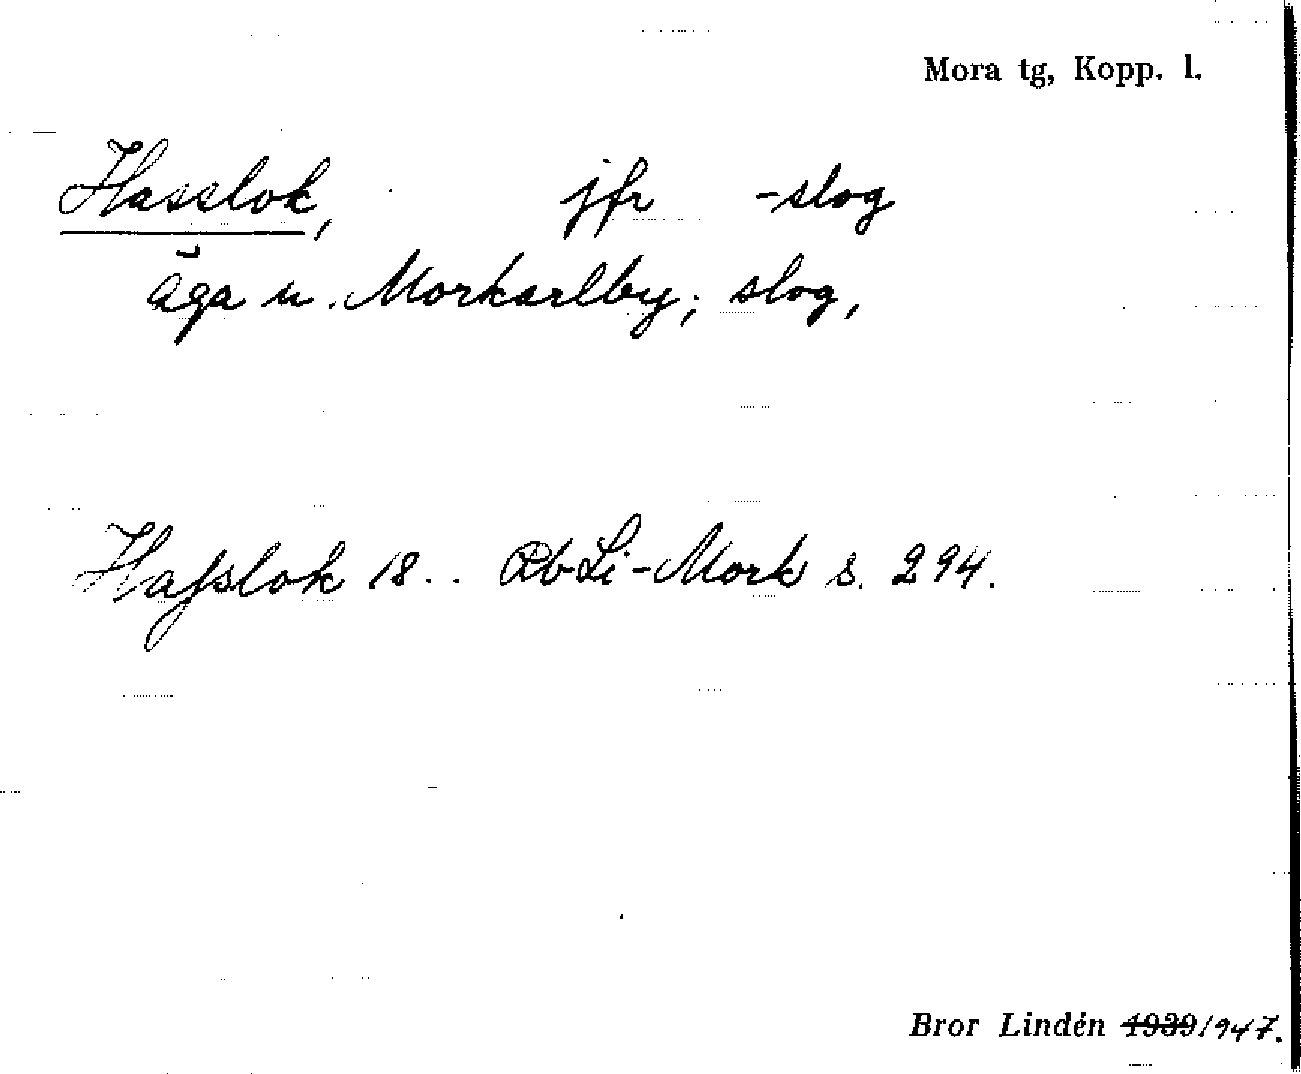 Mora tg, Kopp. l.
Hasslok, jfr -slog
äga u. Morkarlby; slog,
Hafslok 18.. Rb Li-Mork s. 294.
Bror Lindén 1939 1947.